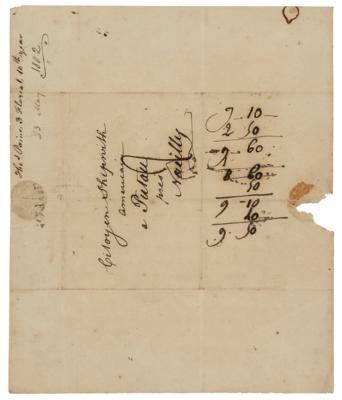 Thos Paine 3 Floreal 10th year
23 May 1802
Citoyen Skipwith
american
a Putau
pres
Nauilly
7 10
2 50
9 60
8 60
50
9 10
40
9 50